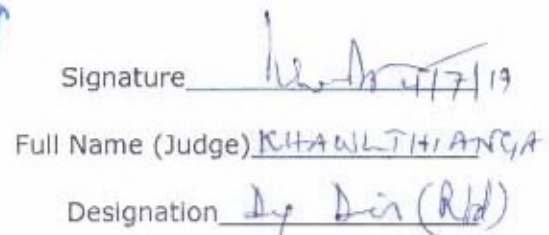 Signature 4/7/19
Full Name (Judge) KHAWLTHIANGA
Designation Dy Dir (Rtd)